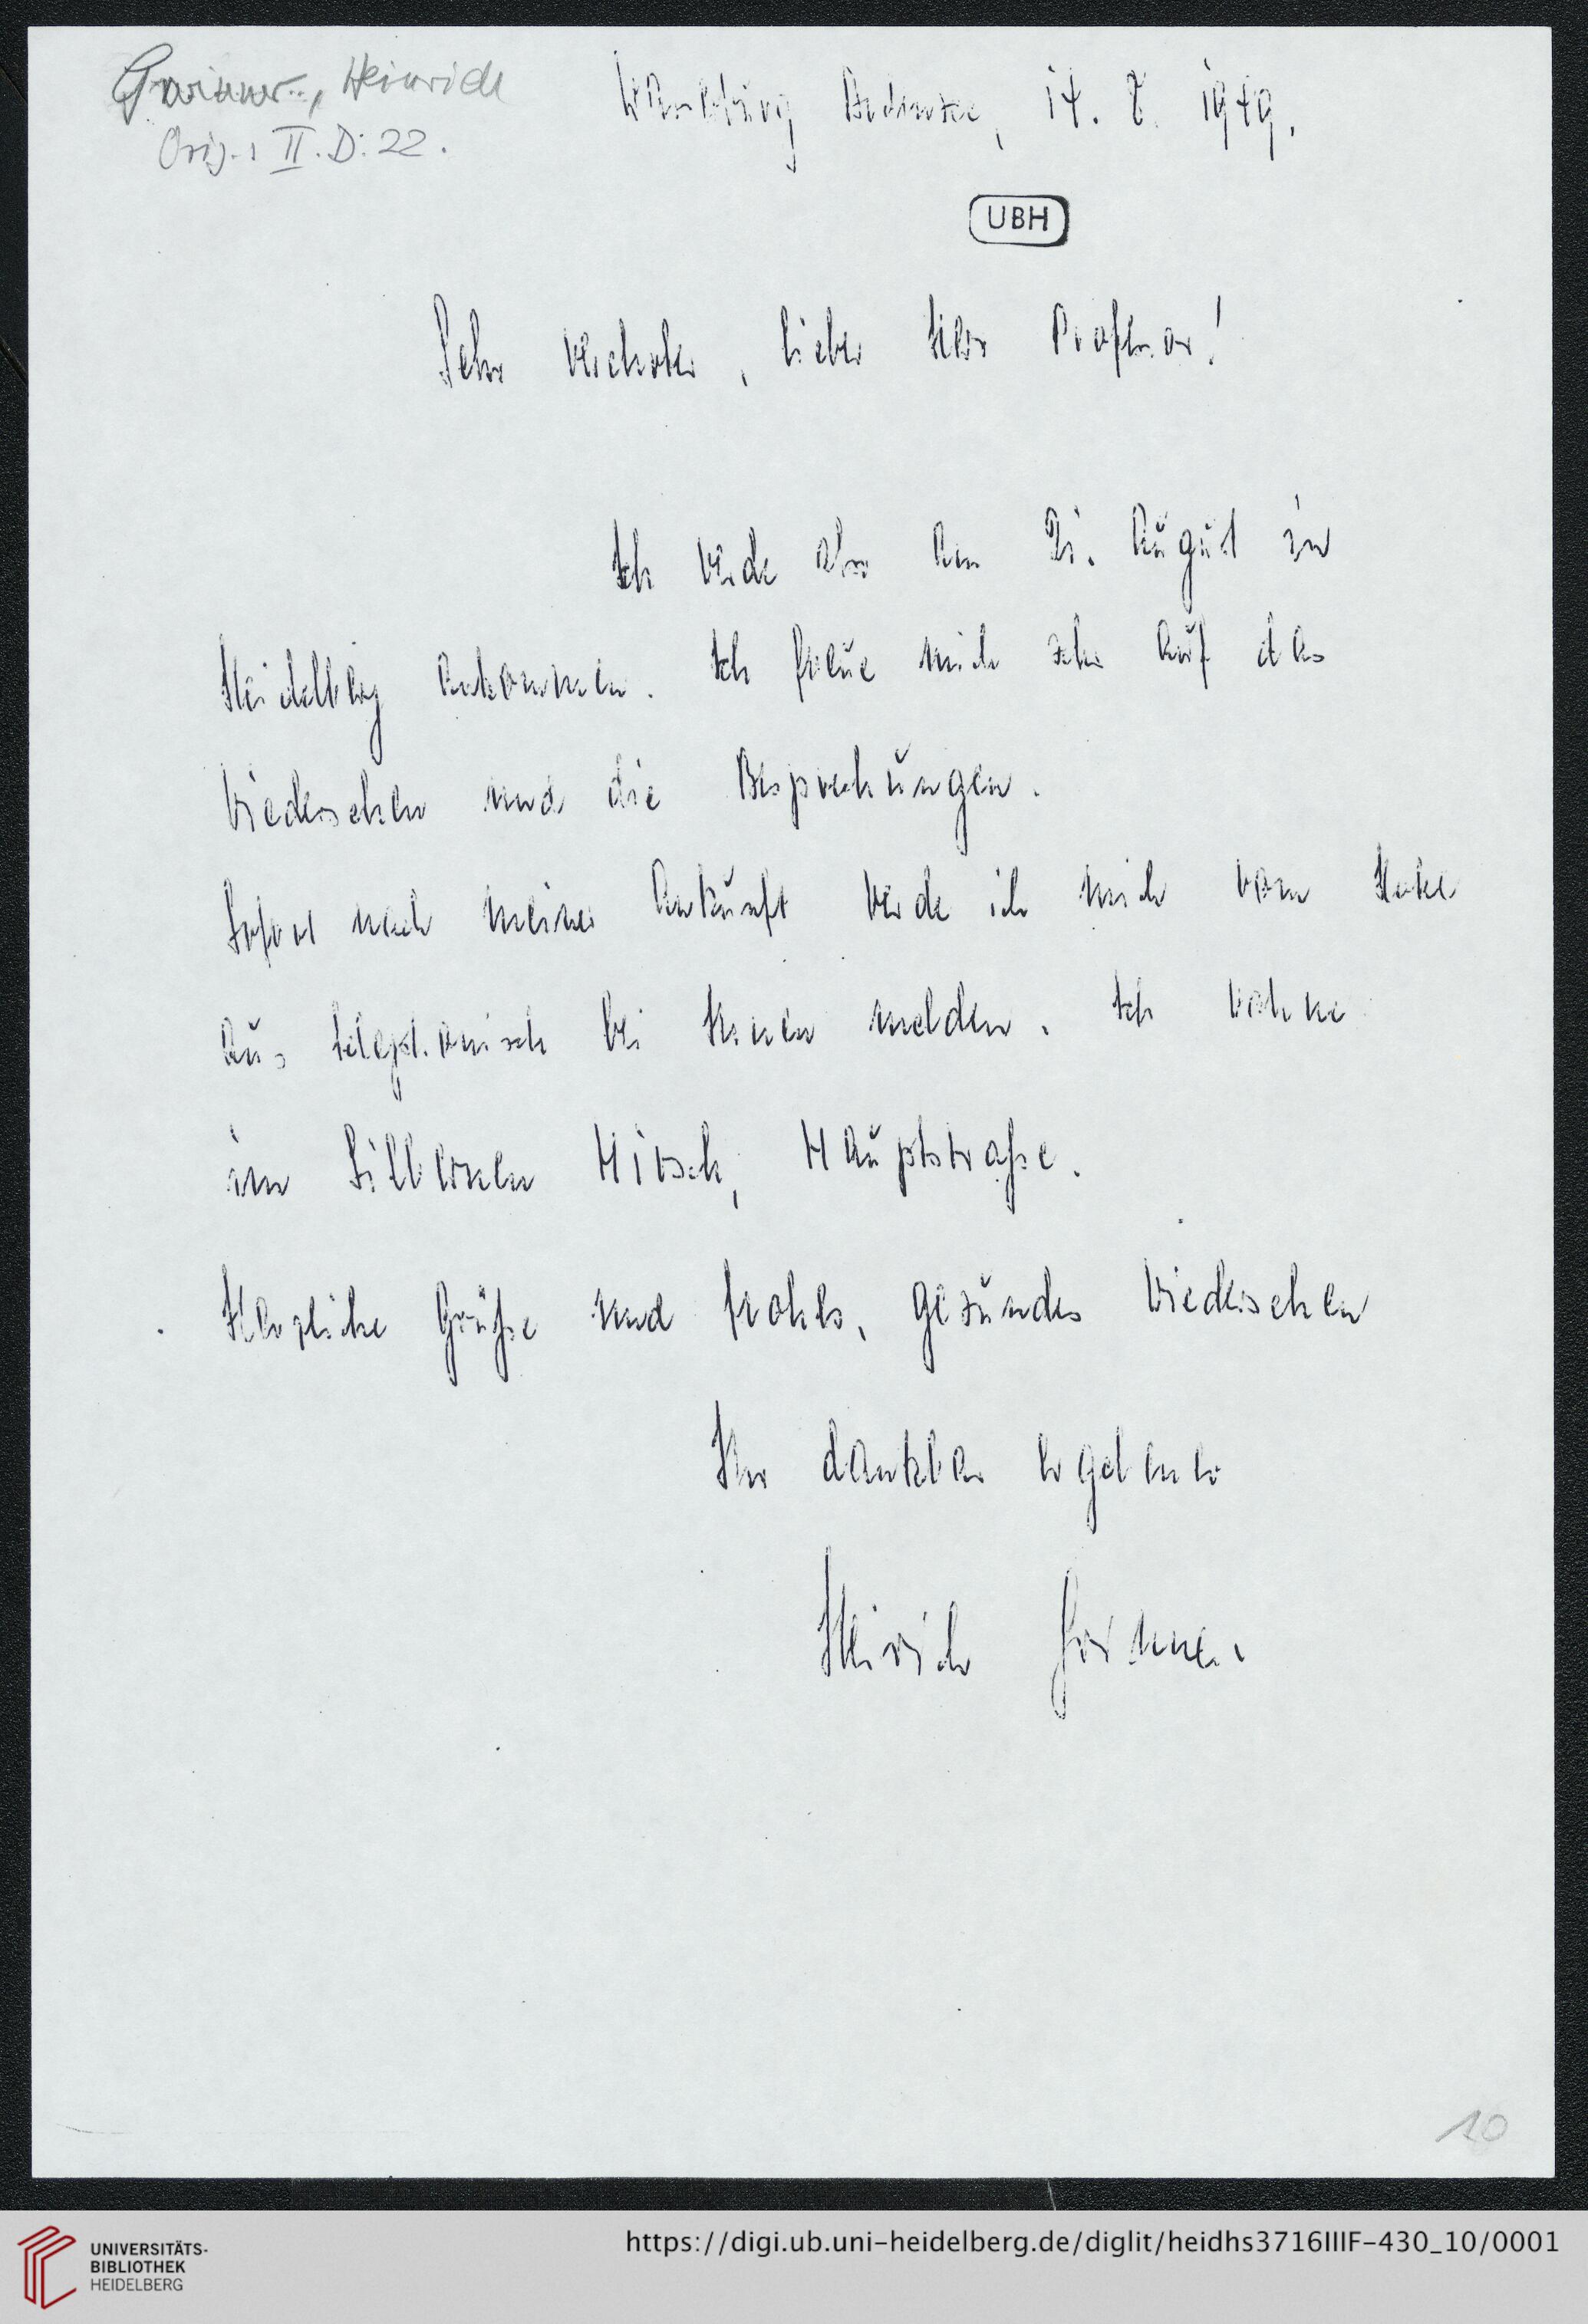 Grimme, Heinrich
Orig.: II. D: 22.
Ammersee, 14. 8. 1949.
UBH
Sehr verehrter, lieber Herr Professor!
Ich werde also am 21. August in
Heidelberg ankommen. Ich freue mich sehr auf das
Wiedersehen und die Besprechungen.
Sofort nach meiner Ankunft werde ich mich vom Hotel
aus telephonisch bei Ihnen melden. Ich wohne
im Silbernen Hirsch, Hauptstraße.
Herzliche Grüße und frohes, gesundes Wiedersehen
Ihr dankbar ergebener
Heinrich
10
UNIVERSITÄTS-
BIBLIOTHEK
HEIDELBERG
https://digi.ub.uni-heidelberg.de/diglit/heidhs3716IIIF-430_10/0001